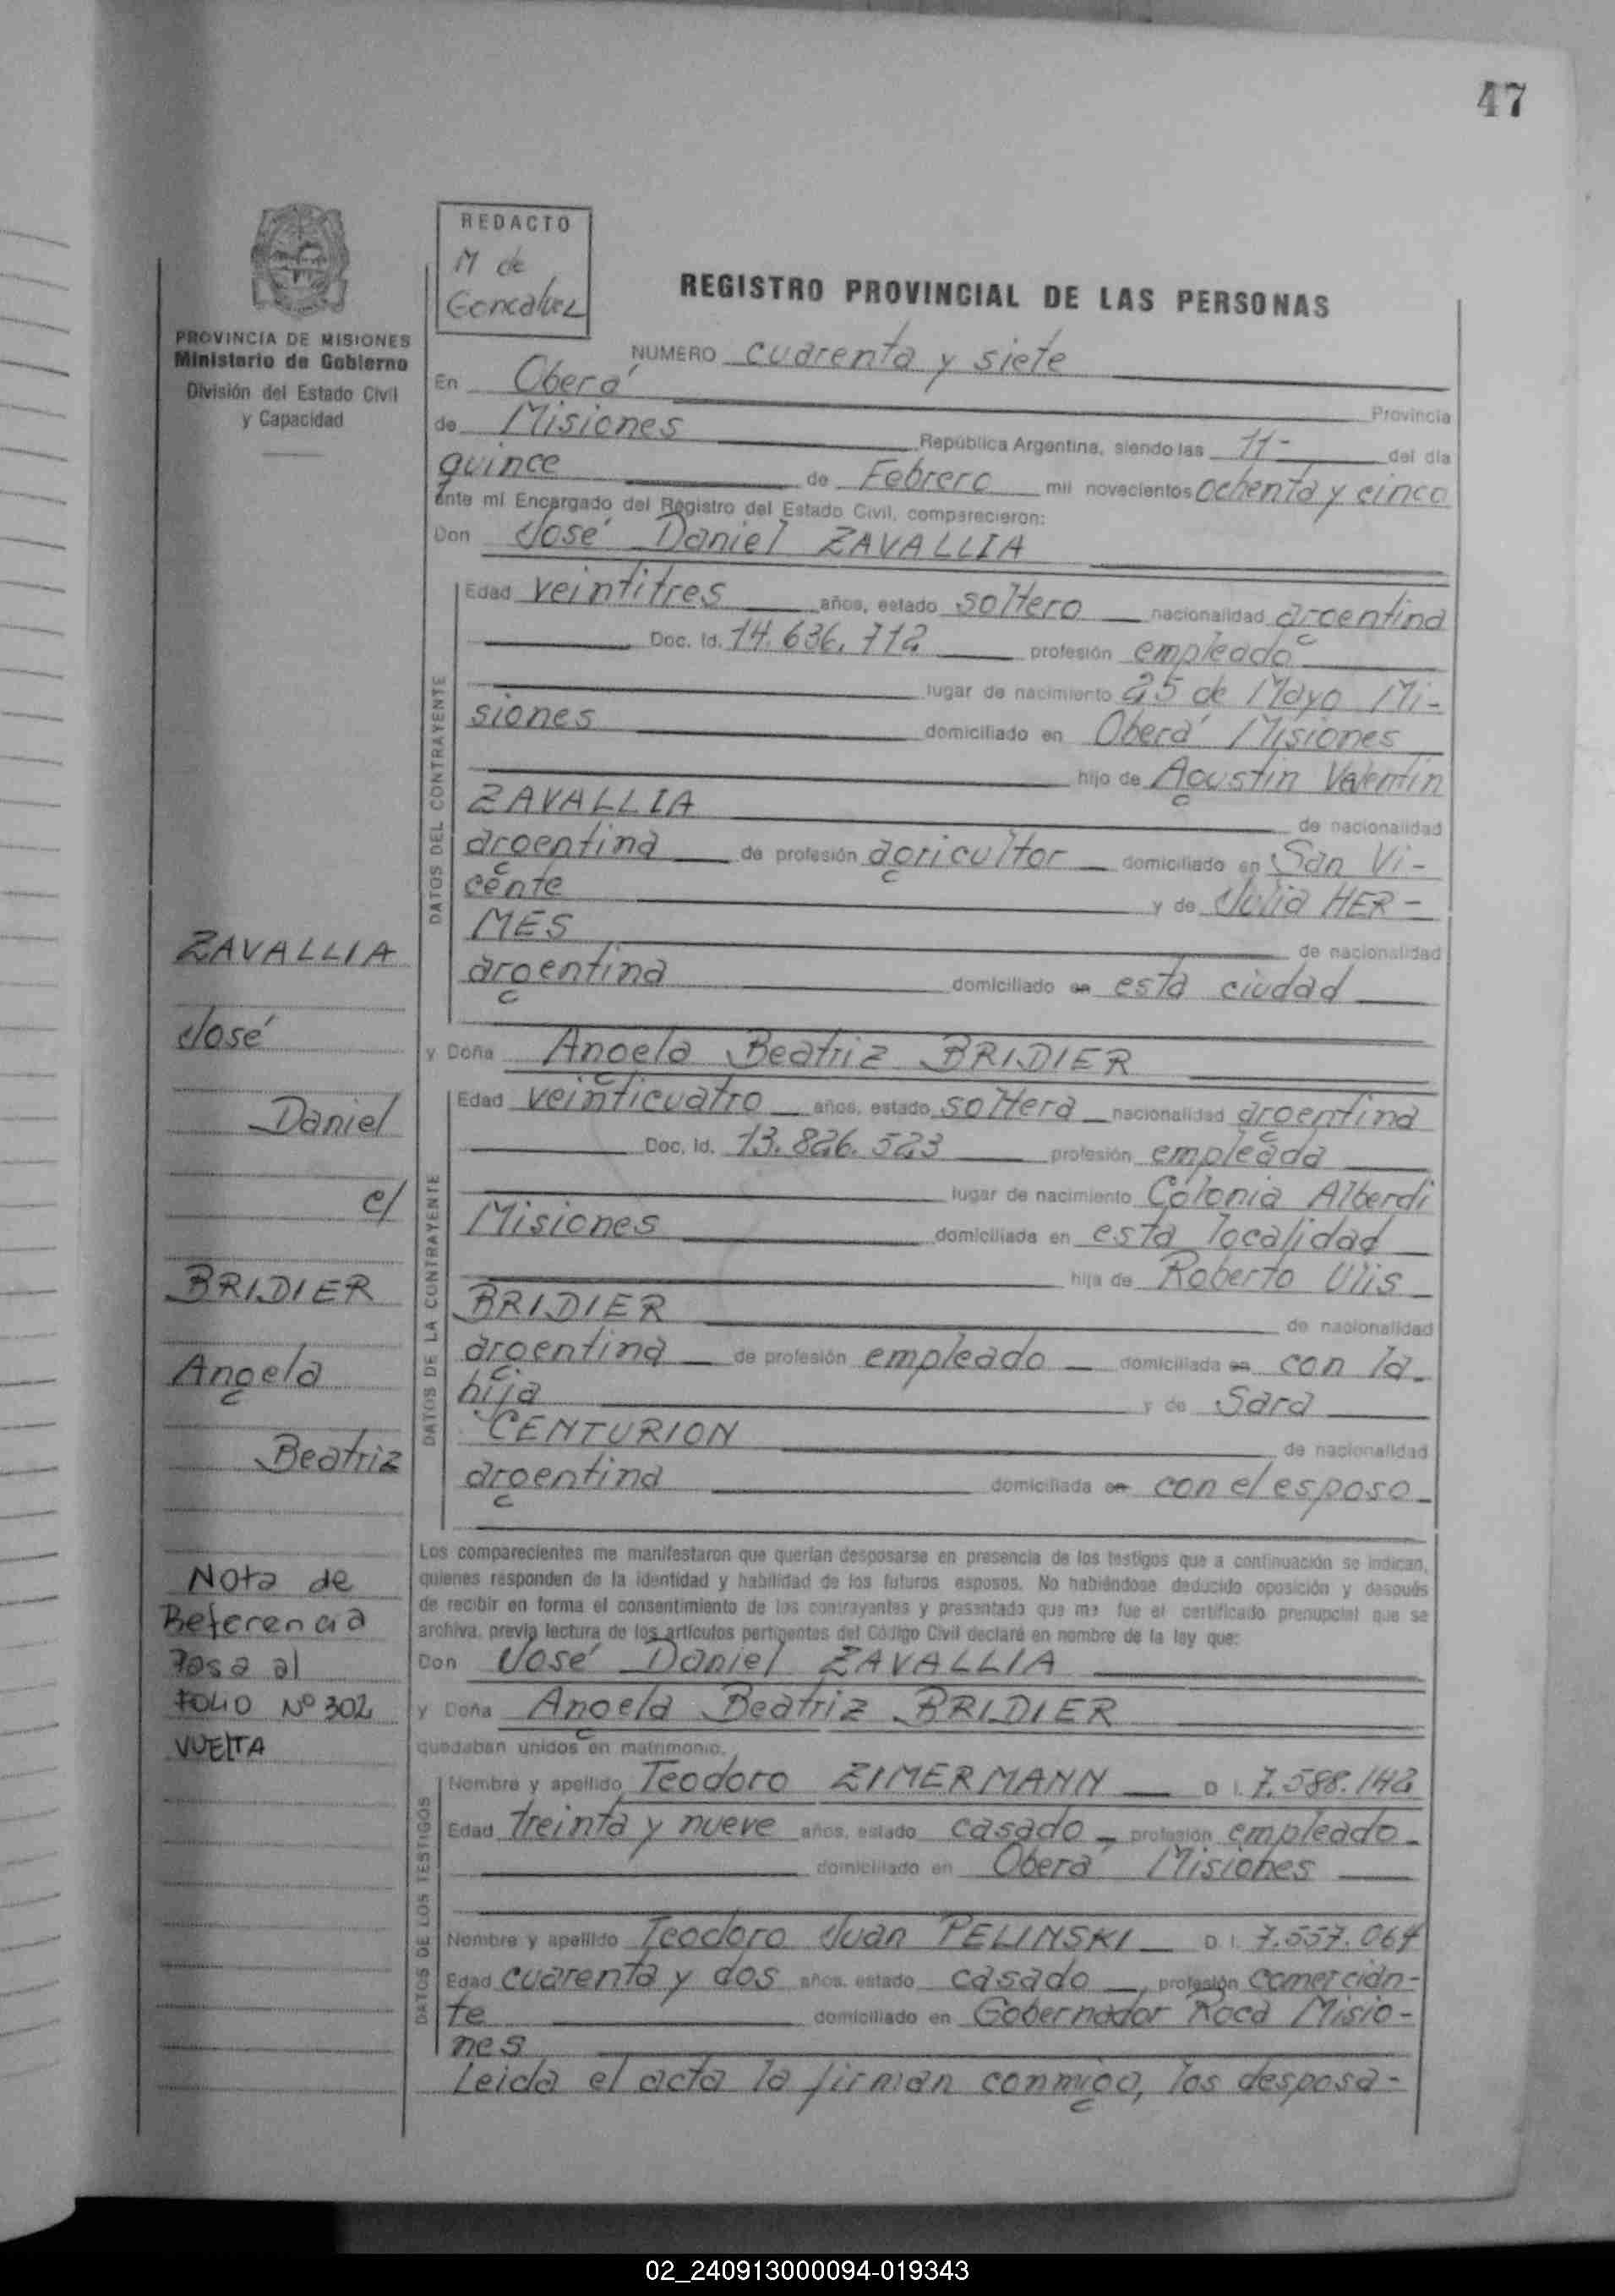 47
REDACTO
M de
Goncalvez
REGISTRO PROVINCIAL DE LAS PERSONAS
PROVINCIA DE MISIONES
Ministerio de Gobierno
División del Estado Civil
y Capacidad
NUMERO cuarenta y siete
En Oberá Provincia
de Misiones República Argentina, siendo las 11- del día
quince de Febrero mil novecientos ochenta y cinco
ante mi Encargado del Registro del Estado Civil, comparecieron:
Don José Daniel ZAVALLIA
DATOS DEL CONTRAYENTE
Edad veintitres años, estado soltero nacionalidad argentina
Doc. Id. 14.636.712 profesión empleado
lugar de nacimiento 25 de Mayo Mi-
siones domiciliado en Oberá Misiones
hijo de Agustin Valentin
ZAVALLIA de nacionalidad
argentina de profesión agricultor domiciliado en San Vi-
cente y de Julia HER-
MES de nacionalidad
argentina domiciliado en esta ciudad
y Doña Angela Beatriz BRIDIER
DATOS DE LA CONTRAYENTE
Edad veinticuatro años, estado soltera nacionalidad argentina
Doc. Id. 13.826.523 profesión empleada
lugar de nacimiento Colonia Alberdi
Misiones domiciliada en esta localidad
hija de Roberto Ulis
BRIDIER de nacionalidad
argentina de profesión empleado domiciliada en con la
hija y de Sara
CENTURION de nacionalidad
argentina domiciliada en con el esposo
Los comparecientes me manifestaron que querían desposarse en presencia de los testigos que a continuación se indican,
quienes responden de la identidad y habilidad de los futuros esposos. No habiéndose deducido oposición y después
de recibir en forma el consentimiento de los contrayentes y presentado que me fue el certificado prenupcial que se
archiva, previa lectura de los artículos pertinentes del Código Civil declaré en nombre de la ley que:
Don José Daniel ZAVALLIA
y Doña Angela Beatriz BRIDIER
quedaban unidos en matrimonio.
DATOS DE LOS TESTIGOS
Nombre y apellido Teodoro ZIMERMANN D I. 7.588.142
Edad treinta y nueve años, estado casado profesión empleado
domiciliado en Oberá Misiones
Nombre y apellido Teodoro Juan PELINSKI D. I. 7.557.064
Edad cuarenta y dos años, estado casado profesión comercian-
te domiciliado en Gobernador Roca Misio-
nes
Leida el acta la firman conmigo, los desposa-
ZAVALLIA
José
Daniel
c/
BRIDIER
Angela
Beatriz
Nota de
Referencia
Pasa al
FOLIO Nº 302
VUELTA
02_240913000094-019343